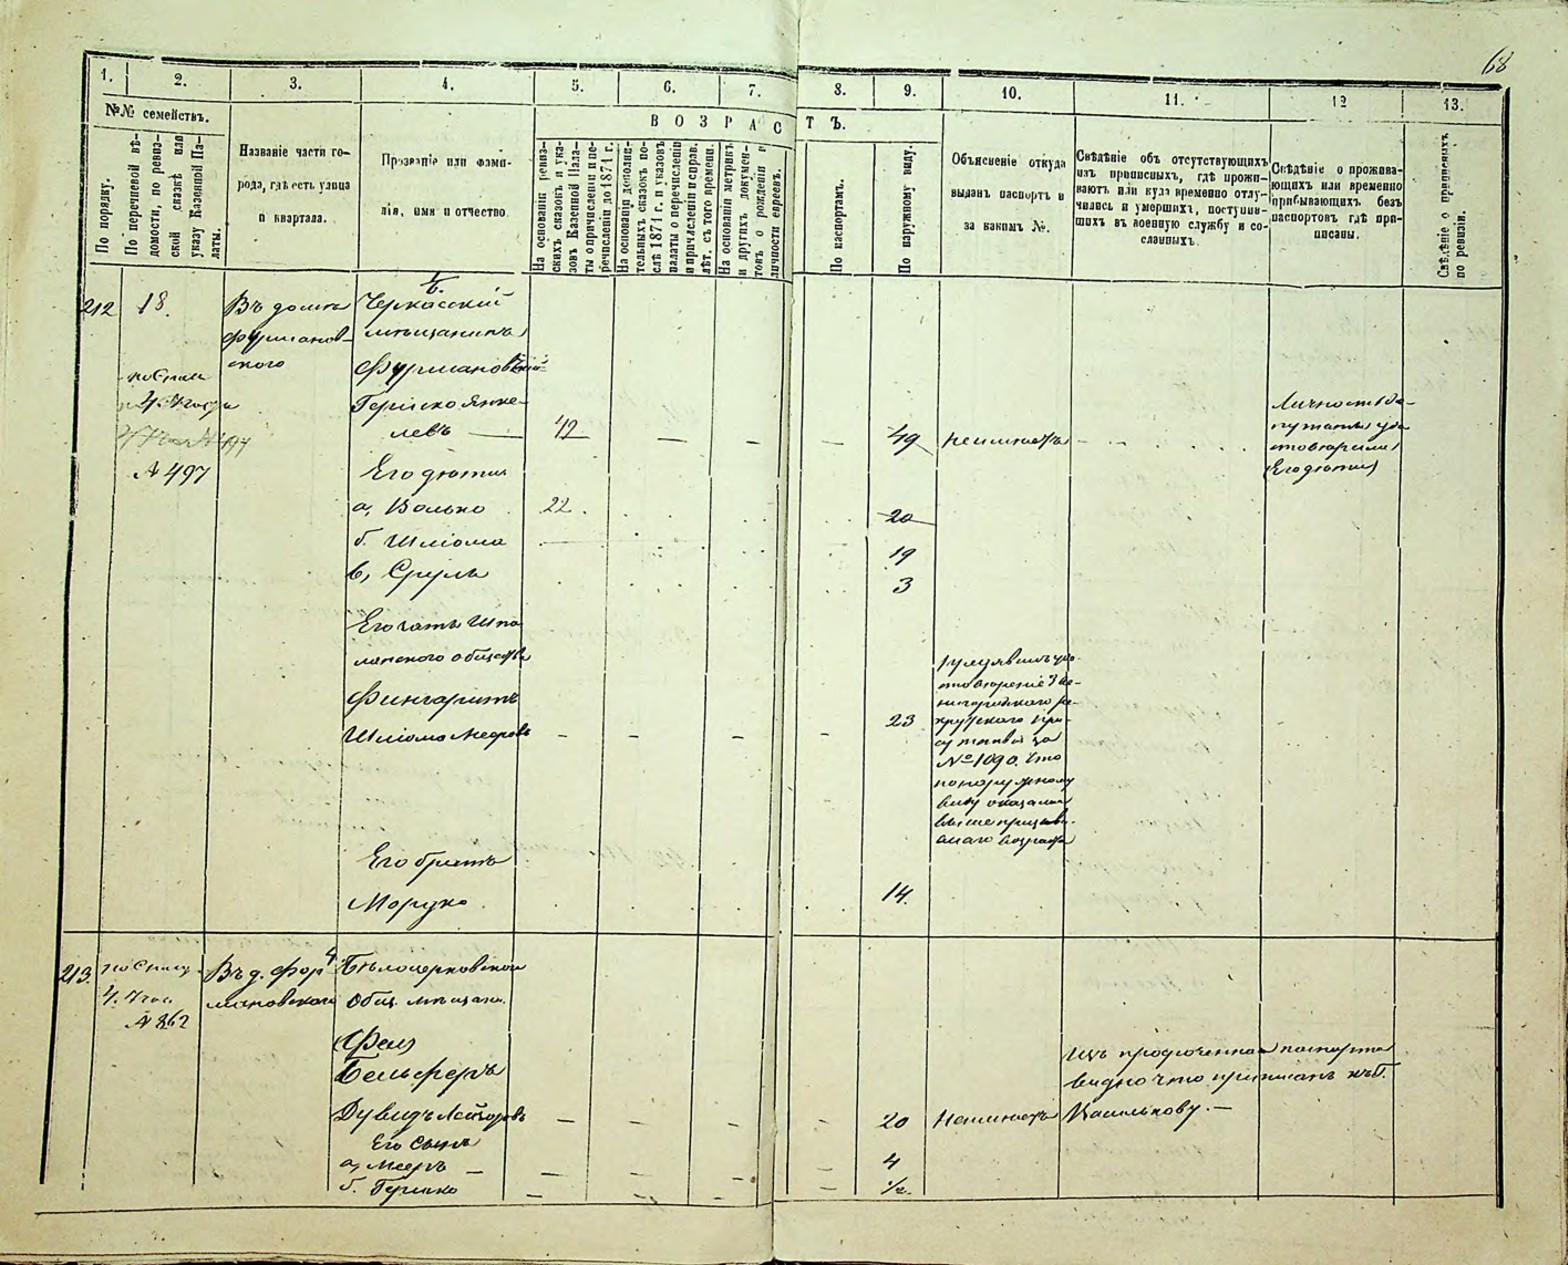 68
1. 2. 3. 4. 5. 6. 7. 8. 9. 10. 11. 12 13.
№№ семействъ.
ВОЗРАСТЪ.
По порядку.
По перечневой вѣ-
домости, по ревиз-
ской сказкѣ или
указу Казенной Па-
латы.
Названіе части го-
рода, гдѣ есть улица
и квартала.
Прозваніе или фами-
лія, имя и отчество.
На основаніи ревиз-
скихъ сказокъ и ука-
зовъ Казенной Пала-
ты о причисленіи и пе-
речисленіи до 1871 г.
На основаніи дополни-
тельныхъ сказокъ по-
слѣ 1871 г. и указовъ
палаты о перечисленіи
и причисленіи и справ.
лѣт. съ того времени.
На основаніи метрикъ
и другихъ докумен-
товъ о рожденіи и
личности евреевъ.
По паспортамъ.
По наружному виду.
Объясненіе откуда
выданъ паспортъ и
за какимъ №.
Свѣдѣніе объ отсутствующихъ
изъ приписныхъ, гдѣ прожи-
ваютъ или куда временно отлу-
чились и умершихъ, поступив-
шихъ въ военную службу и со-
сланныхъ.
Свѣдѣніе о прожива-
ющихъ или временно
прибывающихъ безъ
паспортовъ гдѣ при-
писаны.
Свѣдѣніе о приписныхъ
по ревизіи.
212 18. Въ домѣ Черкасскій
Фурманов- мѣщанинъ
ского Фурмановскій
по Спис
4. Части Гершко Янке-
левъ — 42 — — — 49 неимѣетъ
Личность де-
путаты удо-
стоверили
(Его дѣти)
№ 497 Его дѣти
а, Волько 22. 20
б. Шліома 19
в, Сруль 3
Его зять Шпо
лянского общества
Фингаритъ
Шліома Мееровъ — — — — 23
стоверение Зве-
нигородского ре-
крутского При-
сутствія за
№ 1090. что
по наружному
виду оказался
выше призыва-
емаго возраста
Его братъ
Моруко 14.
213. по Списку Въ д. Фор Бѣлоцерковскои
4. Час мановского Общ. мѣщан.
№ 862
(Фел)
Бельферъ
Изъ просроченнаго паспорта
видно что приписанъ къ г.
Дувидъ Лейзоровъ — — — 20 Неимѣетъ Василькову. —
Его Сынъ
а, Мееръ — — — — — 4
б. Гершко — — — — 1/2.